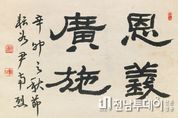 恩義
廣施
辛卯之秋節
尹
烈
전남투데이